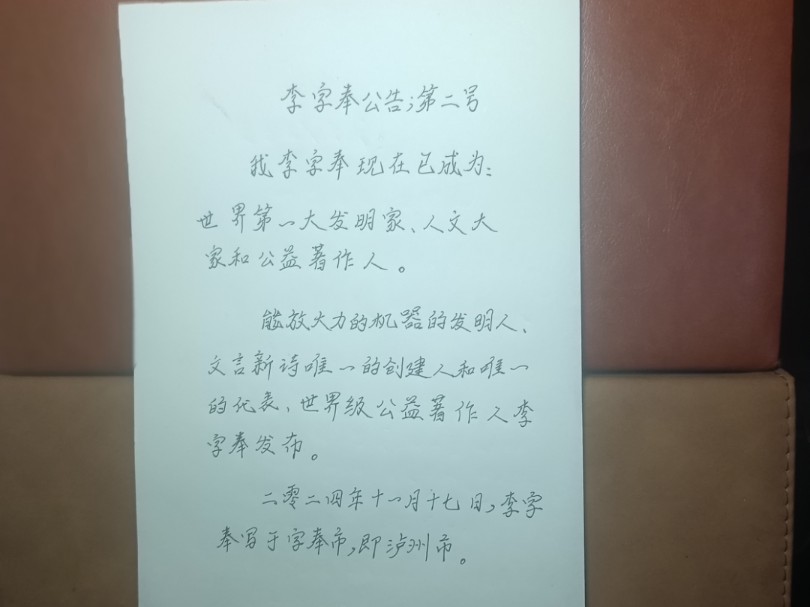 李字奉公告;第二号
我李字奉现在已成为:
世界第一大发明家、人文大
家和公益著作人。
能放大力的机器的发明人、
文言新诗唯一的创建人和唯一
的代表、世界级公益著作人李
字奉发布。
二零二四年十一月十七日,李字
奉写于字奉市,即泸州市。